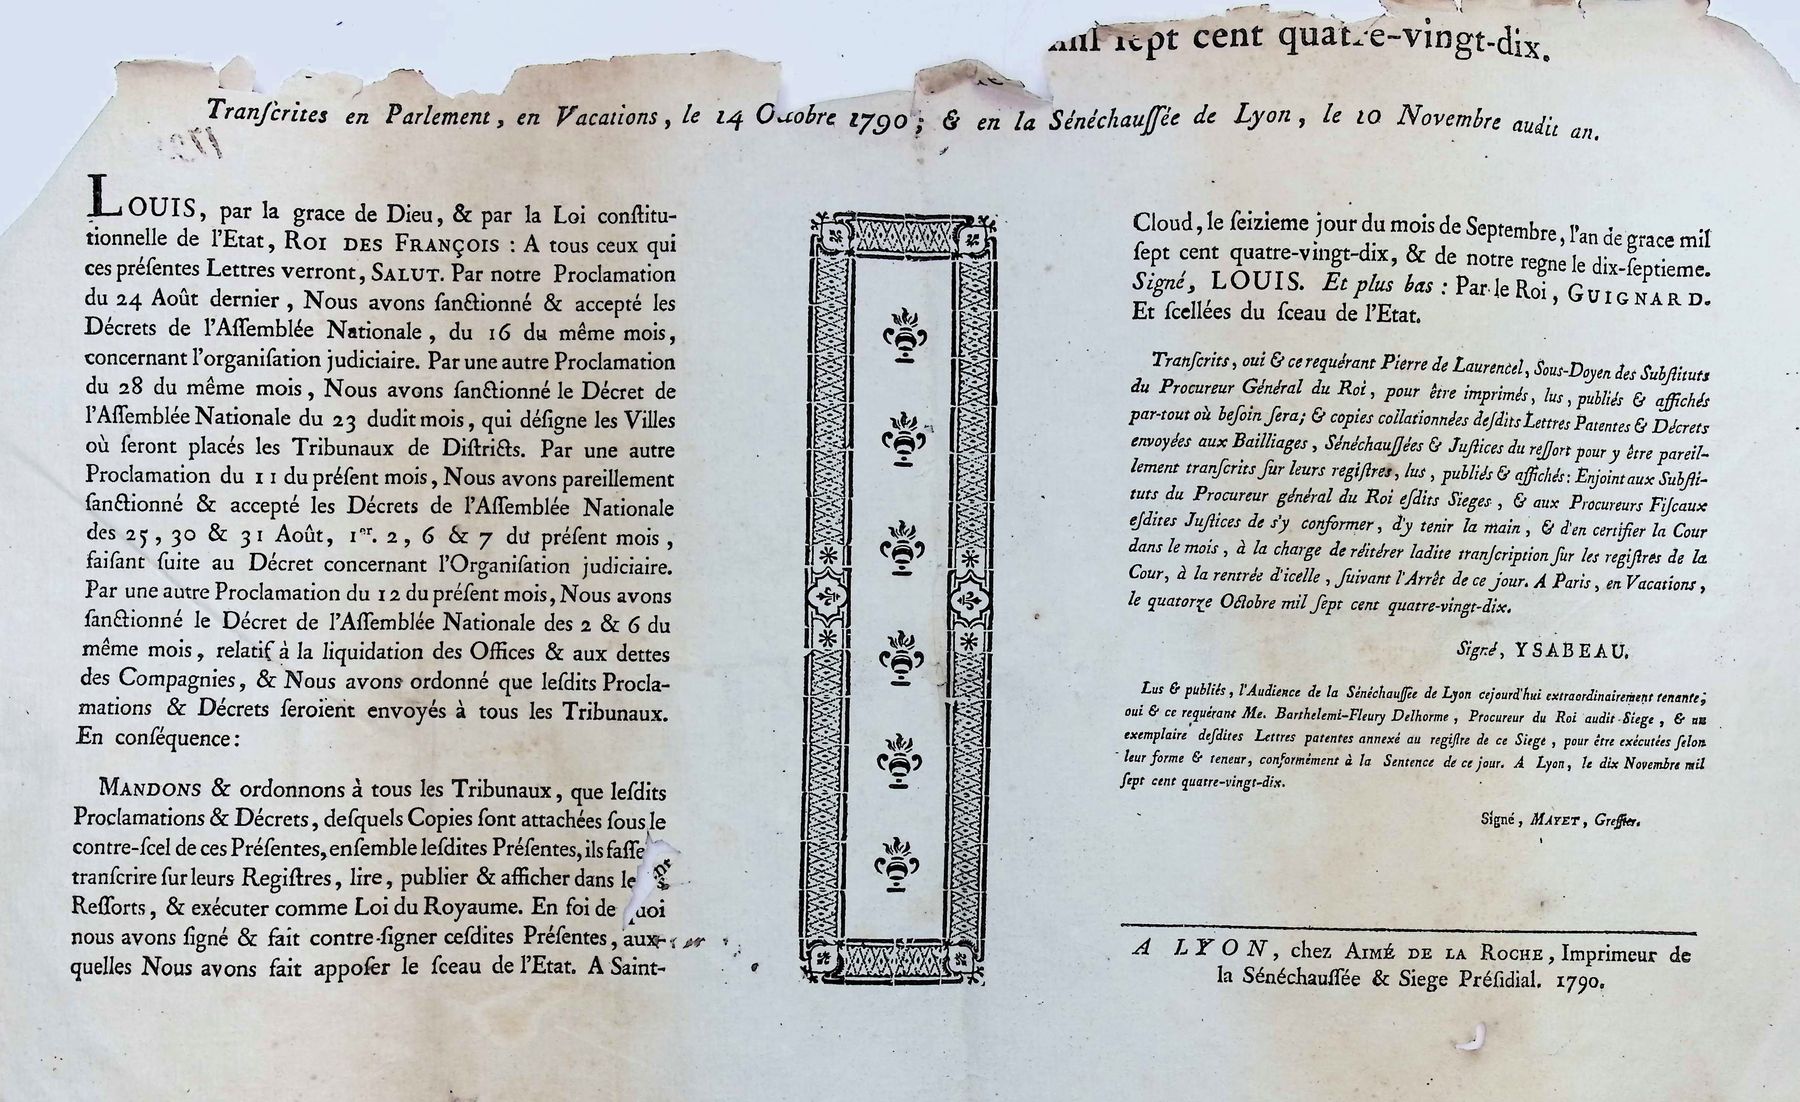 sept cent quatre-vingt-dix.
Tranſcrites en Parlement, en Vacations, le 14 Octobre 1790; & en la Sénéchauſſée de Lyon, le 10 Novembre audit an.
LOUIS, par la grace de Dieu, & par la Loi conſtitu-
tionnelle de l'Etat, ROI DES FRANÇOIS : A tous ceux qui
ces préſentes Lettres verront, SALUT. Par notre Proclamation
du 24 Août dernier, Nous avons ſanctionné & accepté les
Décrets de l'Aſſemblée Nationale, du 16 du même mois,
concernant l'organiſation judiciaire. Par une autre Proclamation
du 28 du même mois, Nous avons ſanctionné le Décret de
l'Aſſemblée Nationale du 23 dudit mois, qui déſigne les Villes
où ſeront placés les Tribunaux de Diſtricts. Par une autre
Proclamation du 11 du préſent mois, Nous avons pareillement
ſanctionné & accepté les Décrets de l'Aſſemblée Nationale
des 25, 30 & 31 Août, 1er. 2, 6 & 7 du préſent mois,
faiſant ſuite au Décret concernant l'Organiſation judiciaire.
Par une autre Proclamation du 12 du préſent mois, Nous avons
ſanctionné le Décret de l'Aſſemblée Nationale des 2 & 6 du
même mois, relatif à la liquidation des Offices & aux dettes
des Compagnies, & Nous avons ordonné que leſdits Procla-
mations & Décrets ſeroient envoyés à tous les Tribunaux.
En conſéquence:
MANDONS & ordonnons à tous les Tribunaux, que leſdits
Proclamations & Décrets, deſquels Copies ſont attachées ſous le
contre-ſcel de ces Préſentes, enſemble leſdites Préſentes, ils faſſe
tranſcrire ſur leurs Regiſtres, lire, publier & afficher dans le
Reſſorts, & exécuter comme Loi du Royaume. En foi de quoi
nous avons ſigné & fait contre-ſigner ceſdites Préſentes, aux-
quelles Nous avons fait appoſer le ſceau de l'Etat. A Saint-
Cloud, le ſeizieme jour du mois de Septembre, l'an de grace mil
ſept cent quatre-vingt-dix, & de notre regne le dix-ſeptieme.
Signé, LOUIS. Et plus bas : Par le Roi, GUIGNARD.
Et ſcellées du ſceau de l'Etat.
Tranſcrits, oui & ce requérant Pierre de Laurencel, Sous-Doyen des Subſtituts
du Procureur Général du Roi, pour être imprimés, lus, publiés & affichés
par-tout où beſoin ſera; & copies collationnées deſdits Lettres Patentes & Décrets
envoyées aux Bailliages, Sénéchauſſées & Juſtices du reſſort pour y être pareil-
lement tranſcrits ſur leurs regiſtres, lus, publiés & affichés: Enjoint aux Subſti-
tuts du Procureur général du Roi eſdits Sieges, & aux Procureurs Fiſcaux
eſdites Juſtices de s'y conformer, d'y tenir la main, & d'en certifier la Cour
dans le mois, à la charge de réitérer ladite tranſcription ſur les regiſtres de la
Cour, à la rentrée d'icelle, ſuivant l'Arrêt de ce jour. A Paris, en Vacations,
le quatorze Octobre mil ſept cent quatre-vingt-dix.
Signé, YSABEAU.
Lus & publiés, l'Audience de la Sénéchauſſée de Lyon cejourd'hui extraordinairement tenante;
oui & ce requérant Me. Barthelemi-Fleury Delhorme, Procureur du Roi audit Siege, & un
exemplaire deſdites Lettres patentes annexé au regiſtre de ce Siege, pour être exécutées ſelon
leur forme & teneur, conformément à la Sentence de ce jour. A Lyon, le dix Novembre mil
ſept cent quatre-vingt-dix.
Signé, MAYET, Greffier.
A LYON, chez AIMÉ DE LA ROCHE, Imprimeur de
la Sénéchauſſée & Siege Préſidial. 1790.